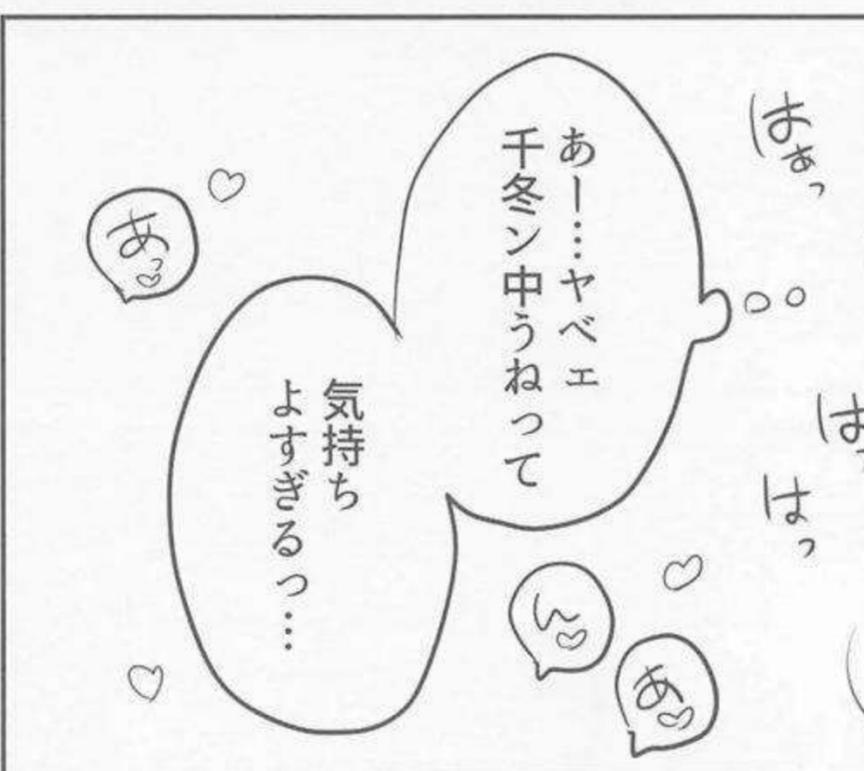 はぁっ
はっ
はっ
あー…ヤベェ
千冬ン中うねって
気持ち
よすぎるっ…
あっ♡
ん♡
あ♡